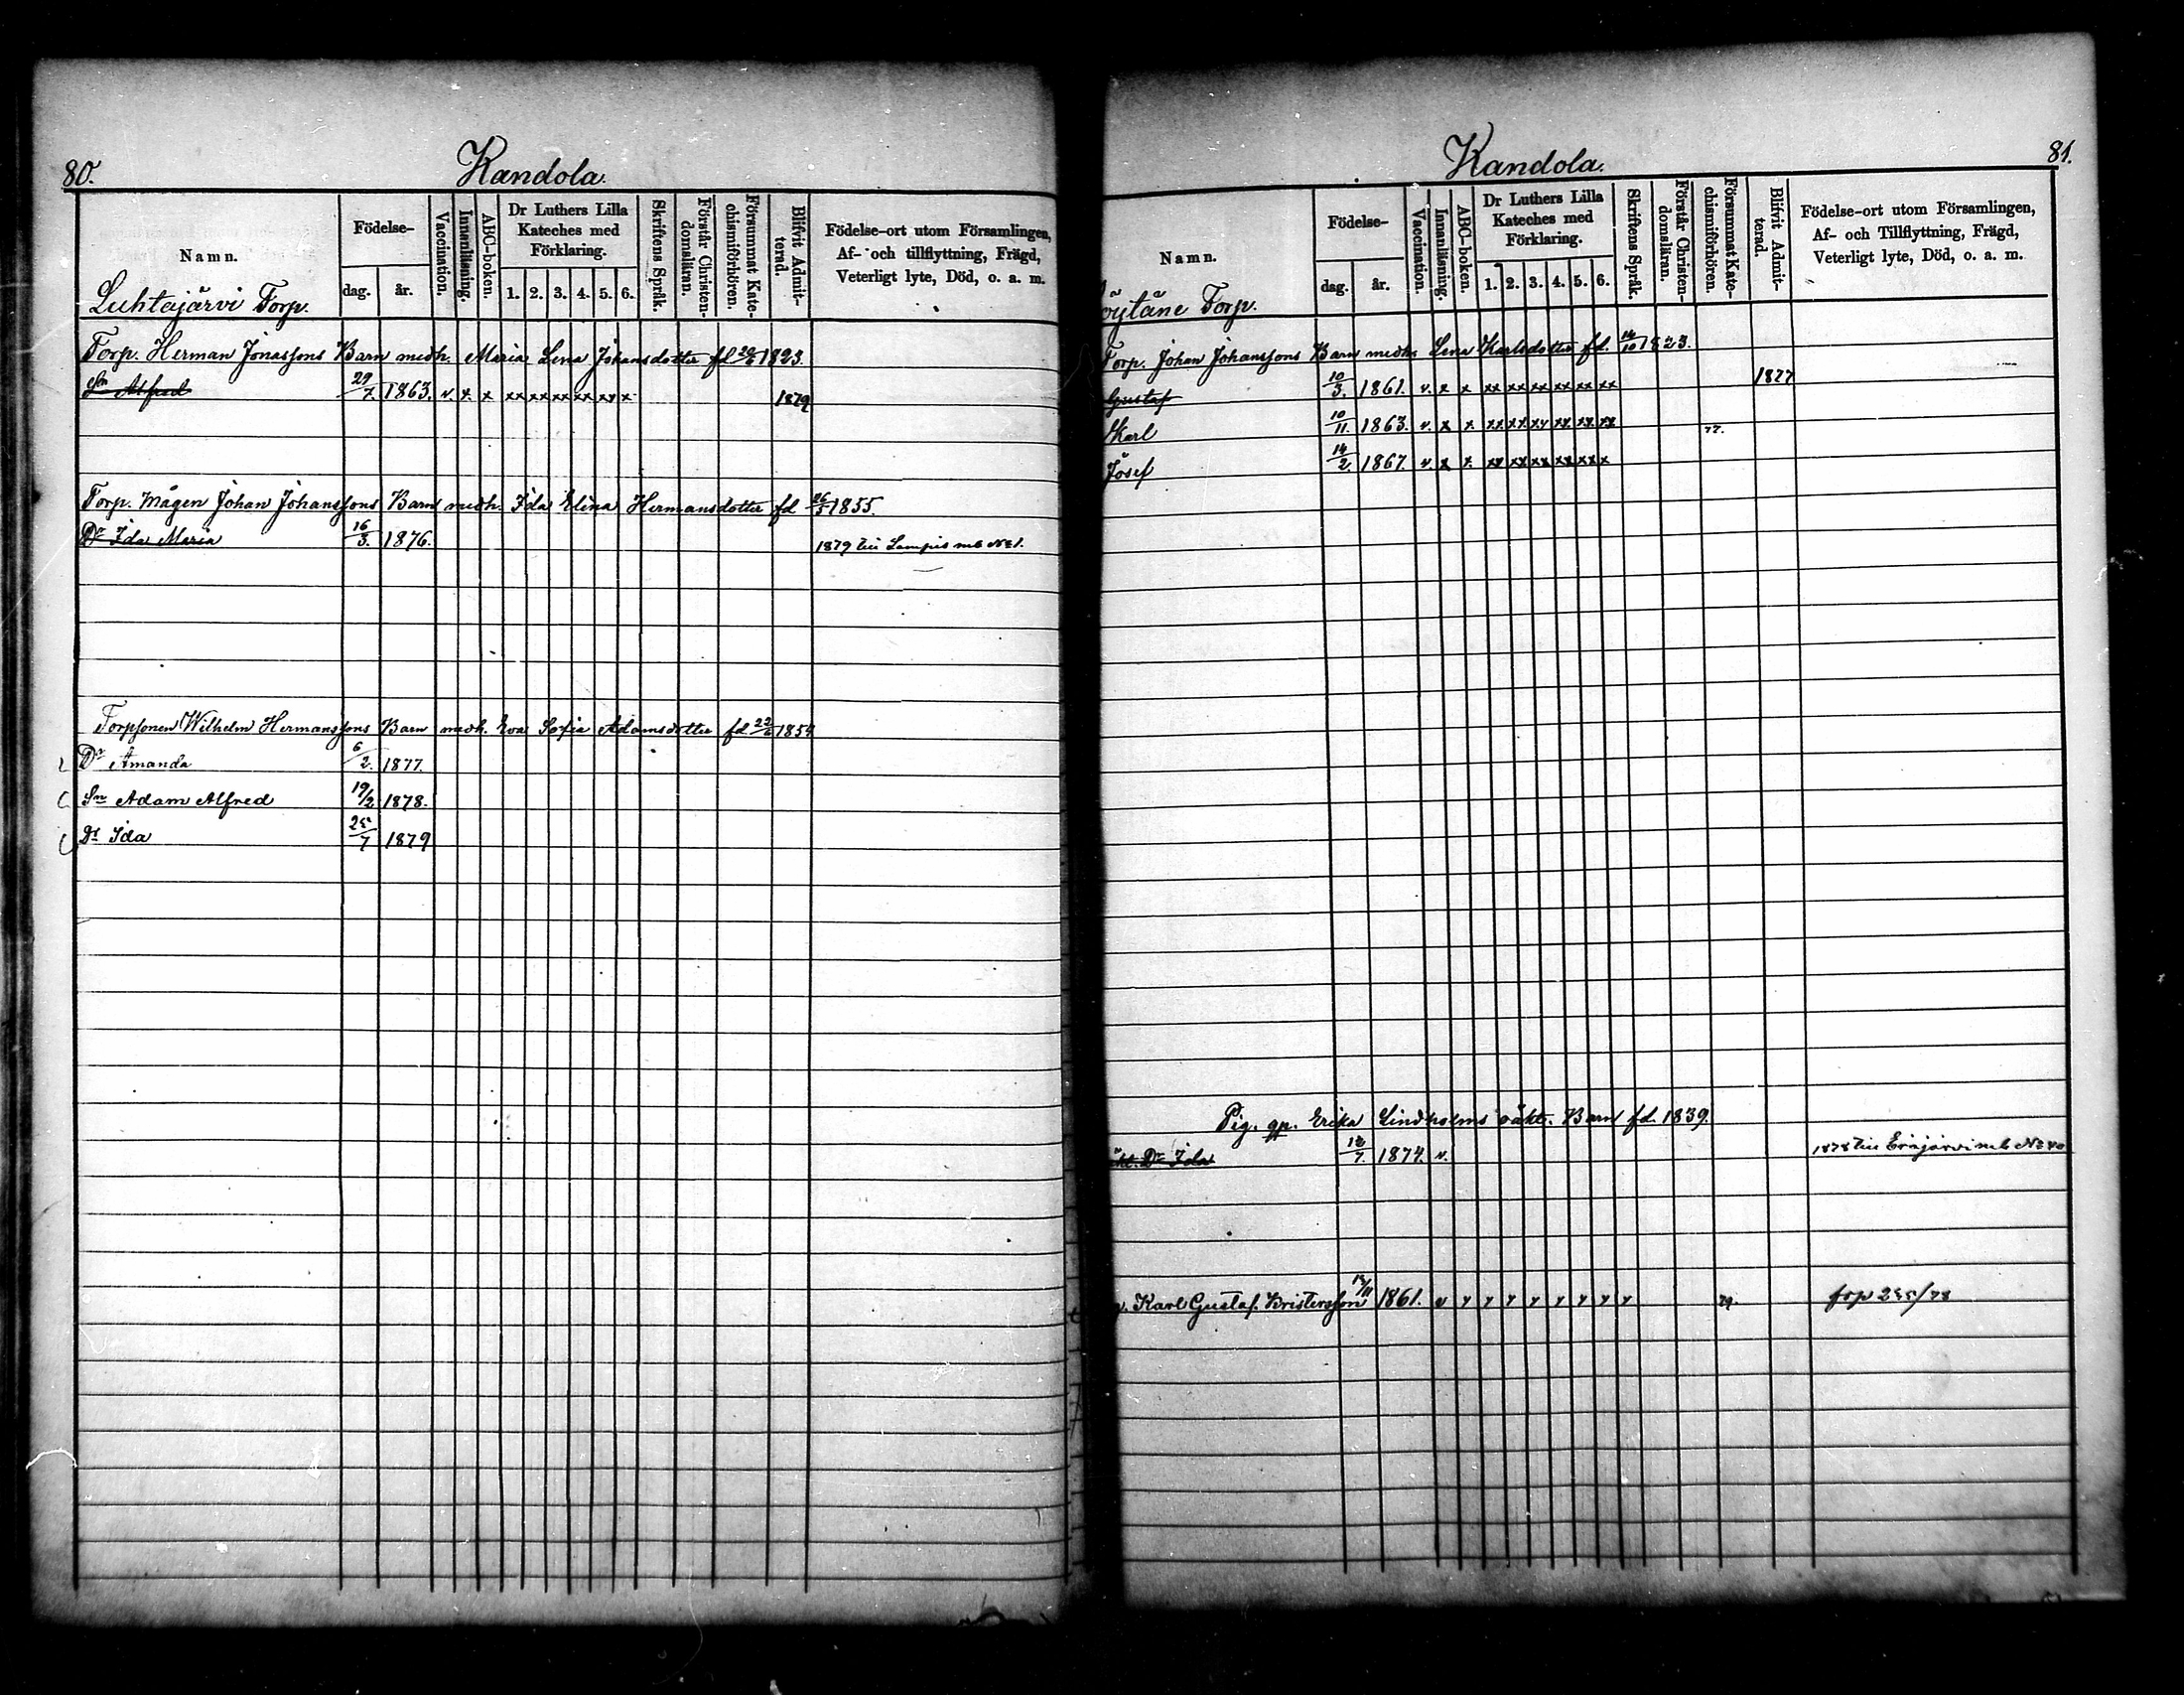 80.
Kandola.
Namn.
Födelse-
dag. år.
Vaccination.
Innanläsning.
ABC-boken.
Dr Luthers Lilla Kateches med Förklaring.
1. 2. 3. 4. 5. 6.
Skriftens Språk.
Förstår Christen-domsläran.
Försummat Kate-chismiförhören.
Blifvit Admit-terad.
Födelse-ort utom Församlingen,
Af- och tillflyttning, Frägd,
Veterligt lyte, Död, o. a. m.
Luhtajärvi Torp.
Torp. Herman Jonassons Barn medh. Maria Lena Johansdotter fd 1823.
Sn Alfred 29/7. 1863. v. x x xx xx xx xx xx x 1879
Torp. mågen Johan Johanssons Barn medh. Ida Elina Hermansdotter fd 1855.
Dr Ida Maria 16/3. 1876. 1879 till Lampis mb No 1.
Torpsonen Wilhelm Hermanssons Barn medh. Eva Sofia Adamsdotter fd 1854
Dr Amanda 6/2. 1877.
Sn Adam Alfred 19/2 1878.
Dr Ida 25/7 1879
81.
Kandola.
Namn.
Födelse-
dag. år.
Vaccination.
Innanläsning.
ABC-boken.
Dr Luthers Lilla Kateches med Förklaring.
1. 2. 3. 4. 5. 6.
Skriftens Språk.
Förstår Christen-domsläran.
Försummat Kate-chismiförhören.
Blifvit Admit-terad.
Födelse-ort utom Församlingen,
Af- och Tillflyttning, Frägd,
Veterligt lyte, Död, o. a. m.
öytäne Torp.
Torp. Johan Johanssons Barn medh. Lena Karlsdotter fd. 14/10 1823.
Gustaf 10/3. 1861. v. x x xx xx xx xx xx xx 1877
Karl 10/11. 1863. v. x x. xx xx xx xx xx xx 77.
Josef 14/2 1867. v. x x. xx xx xx xx xx x
Pig. gp. Erika Lindholms oäkt. Barn fd. 1839.
äkt. Dr Ida /7. 1874. v. 1878 till Eräjärvi mb No
Karl Gustaf Kristersson /11 1861. v y y y y y y y y 79.